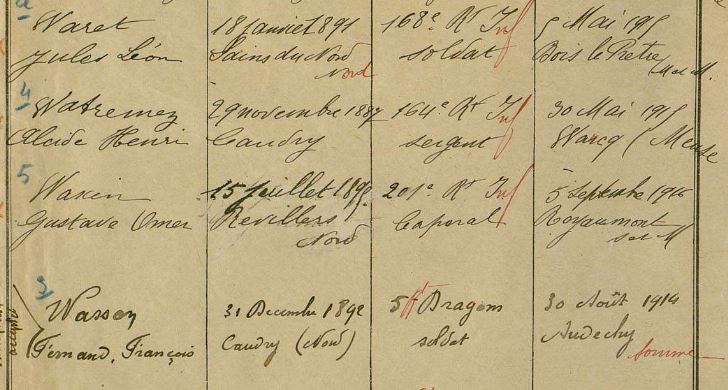 Waret 18 janvier 1891 168e Rt Inf 5 Mai 1915
Jules Léon Sains du Nord soldat Bois le Prêtre
Nord M et M.
4
Watremez 29 novembre 1887 164e Rt Inf 30 Mai 1915
Alcide Henri Caudry sergent Warcq (Meuse
5
Waxin 15 juillet 1890 201e Rt Inf 5 septembre 1916
Gustave Omer Caporal Royaumont
Nord s et M
Wasson 31 Decembre 1892 5e Dragons 30 Août 1914
Fernand, François Caudry (Nord) soldat Andechy
somme